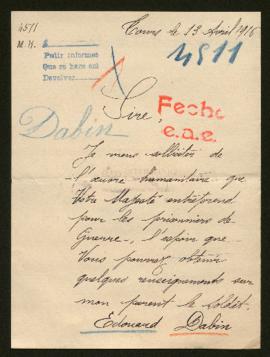 4511
M. H.
Tours le 13 Avril 1916
4511
Pedir informes
Que se hace así
Devolver
Dabin
Sire,
Fecho
e.a.e.
Je viens solliciter de
l'œuvre humanitaire que
Votre Majesté entreprend
pour les prisonniers de
Guerre, l'espoir que
Vous pouvez obtenir
quelques renseignements sur
mon parent le Soldat
Edouard Dabin